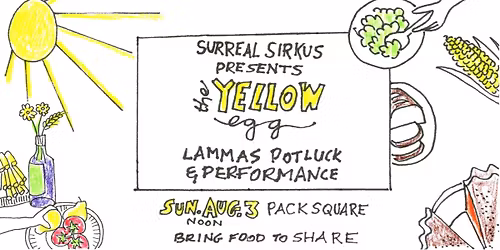 SURREAL SIRKUS
PRESENTS
the YELLOW
egg
LAMMAS POTLUCK
& PERFORMANCE
SUN. AUG. 3 PACK SQUARE
NOON
BRING FOOD TO SHARE